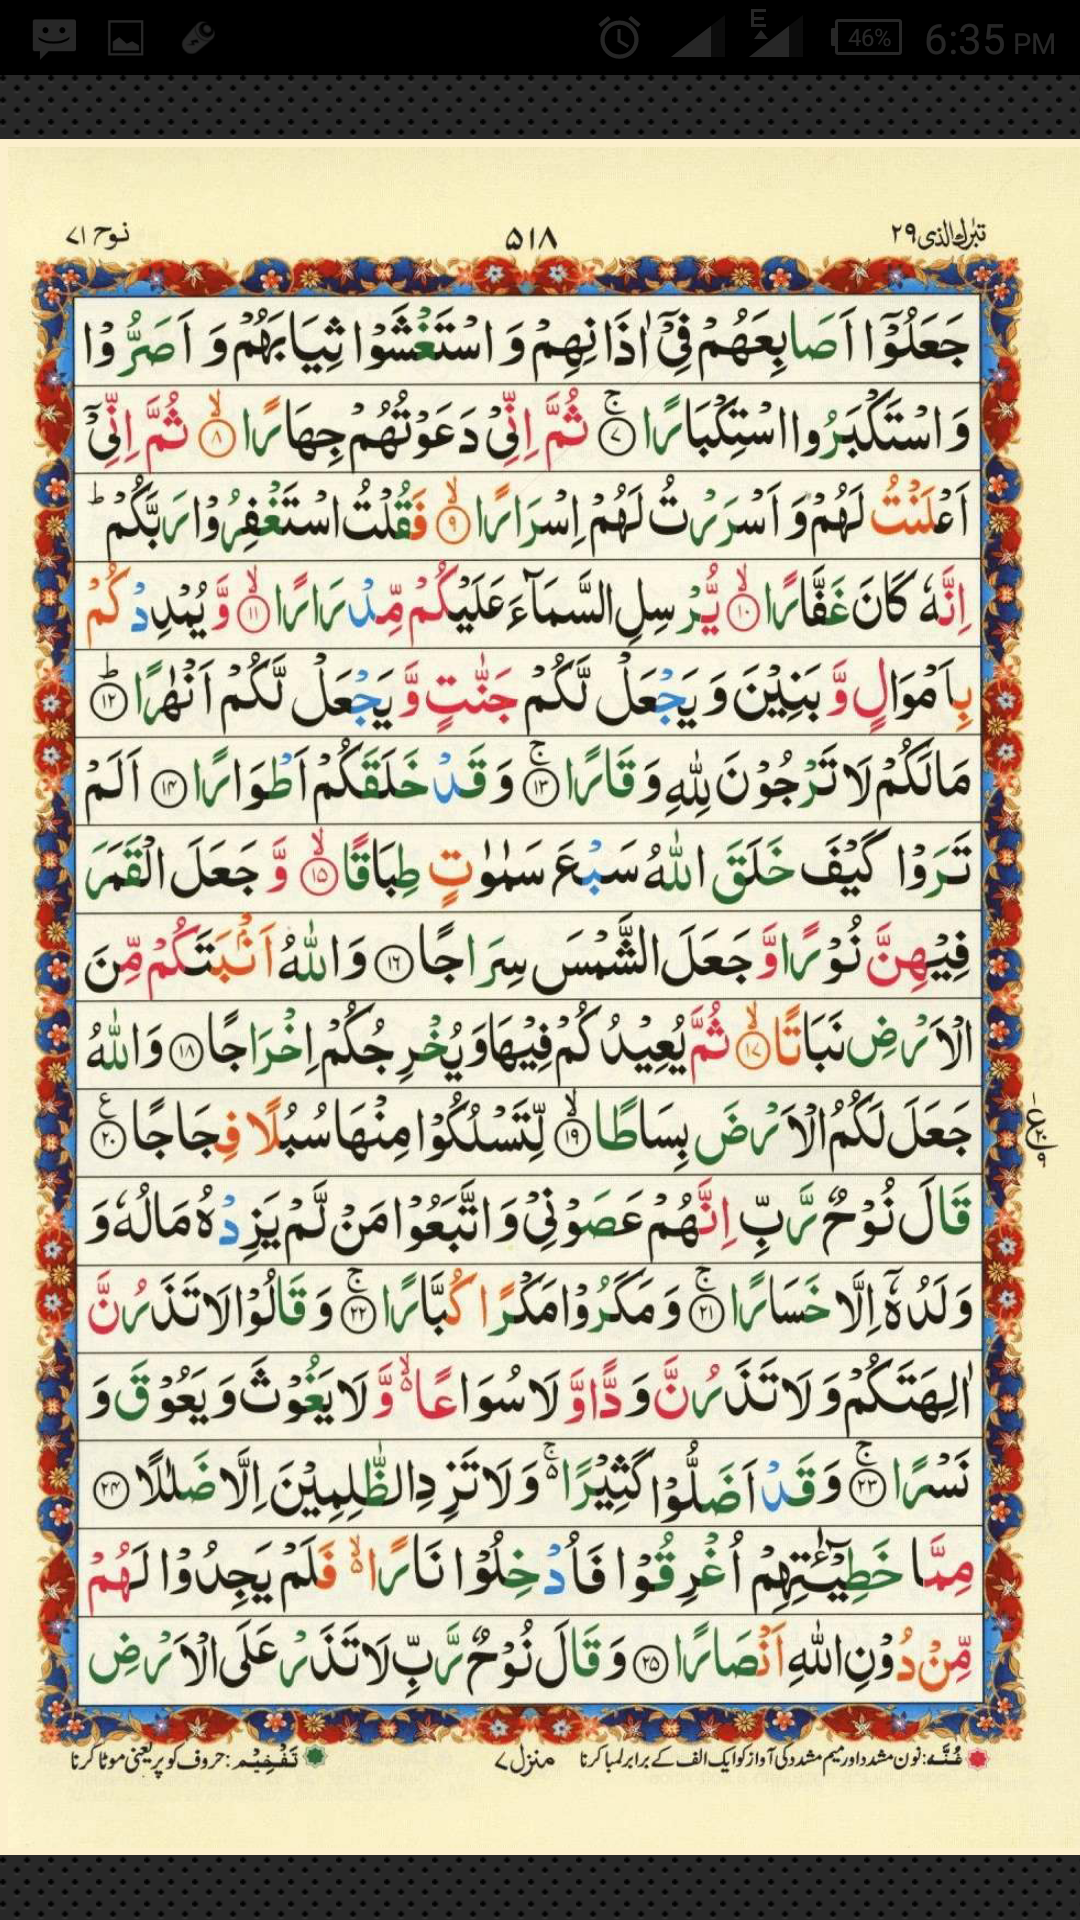 46% 6:35 PM
تبٰرك الذی ٢٩ ٥١٨ نوح ٧١
جَعَلُوْۤا اَصَابِعَهُمْ فِیْۤ اٰذَانِهِمْ وَ اسْتَغْشَوْا ثِیَابَهُمْ وَ اَصَرُّوْا
وَ اسْتَكْبَرُوا اسْتِكْبَارًا ۚ﴿۷﴾ ثُمَّ اِنِّیْ دَعَوْتُهُمْ جِهَارًا ۙ﴿۸﴾ ثُمَّ اِنِّیْۤ
اَعْلَنْتُ لَهُمْ وَ اَسْرَرْتُ لَهُمْ اِسْرَارًا ۙ﴿۹﴾ فَقُلْتُ اسْتَغْفِرُوْا رَبَّكُمْ ؕ
اِنَّهٗ كَانَ غَفَّارًا ۙ﴿۱۰﴾ یُّرْسِلِ السَّمَآءَ عَلَیْكُمْ مِّدْرَارًا ۙ﴿۱۱﴾ وَّ یُمْدِدْكُمْ
بِاَمْوَالٍ وَّ بَنِیْنَ وَ یَجْعَلْ لَّكُمْ جَنّٰتٍ وَّ یَجْعَلْ لَّكُمْ اَنْهٰرًا ؕ﴿۱۲﴾
مَا لَكُمْ لَا تَرْجُوْنَ لِلّٰهِ وَقَارًا ۚ﴿۱۳﴾ وَ قَدْ خَلَقَكُمْ اَطْوَارًا ﴿۱۴﴾ اَلَمْ
تَرَوْا كَیْفَ خَلَقَ اللّٰهُ سَبْعَ سَمٰوٰتٍ طِبَاقًا ۙ﴿۱۵﴾ وَّ جَعَلَ الْقَمَرَ
فِیْهِنَّ نُوْرًا وَّ جَعَلَ الشَّمْسَ سِرَاجًا ﴿۱۶﴾ وَ اللّٰهُ اَنْۢبَتَكُمْ مِّنَ
الْاَرْضِ نَبَاتًا ۙ﴿۱۷﴾ ثُمَّ یُعِیْدُكُمْ فِیْهَا وَ یُخْرِجُكُمْ اِخْرَاجًا ﴿۱۸﴾ وَ اللّٰهُ
جَعَلَ لَكُمُ الْاَرْضَ بِسَاطًا ۙ﴿۱۹﴾ لِّتَسْلُكُوْا مِنْهَا سُبُلًا فِجَاجًا ﴿۲۰﴾
قَالَ نُوْحٌ رَّبِّ اِنَّهُمْ عَصَوْنِیْ وَ اتَّبَعُوْا مَنْ لَّمْ یَزِدْهُ مَالُهٗ وَ
وَلَدُهٗۤ اِلَّا خَسَارًا ۚ﴿۲۱﴾ وَ مَكَرُوْا مَكْرًا كُبَّارًا ۚ﴿۲۲﴾ وَ قَالُوْا لَا تَذَرُنَّ
اٰلِهَتَكُمْ وَ لَا تَذَرُنَّ وَدًّا وَّ لَا سُوَاعًا ۙ۬ وَّ لَا یَغُوْثَ وَ یَعُوْقَ وَ
نَسْرًا ۚ﴿۲۳﴾ وَ قَدْ اَضَلُّوْا كَثِیْرًا ۚ۬ وَ لَا تَزِدِ الظّٰلِمِیْنَ اِلَّا ضَلٰلًا ﴿۲۴﴾
مِمَّا خَطِیْٓـٰٔتِهِمْ اُغْرِقُوْا فَاُدْخِلُوْا نَارًا ۙ۬ فَلَمْ یَجِدُوْا لَهُمْ
مِّنْ دُوْنِ اللّٰهِ اَنْصَارًا ﴿۲۵﴾ وَ قَالَ نُوْحٌ رَّبِّ لَا تَذَرْ عَلَی الْاَرْضِ
غُنَّه: نون مشدد اور میم مشدد کی آواز کو ایک الف کے برابر لمبا کرنا منزل ٧ تَفْخِیْم: حروف کو پُر یعنی موٹا کرنا